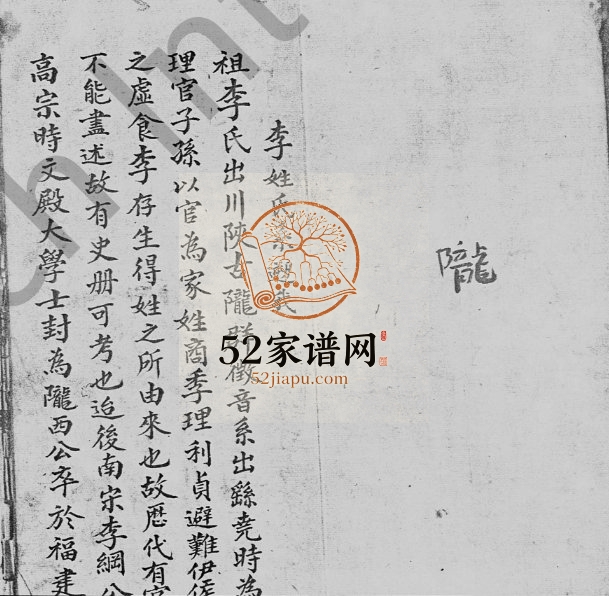 隴
李姓氏
祖李氏出川陝古隴 徵音系出繇堯時為
理官子孫以官為家姓商季理利貞避難伊
之虛食李存生得姓之所由來也故歷代有
不能盡述故有史册可考也迨後南宋李綱公
高宗時文殿大學士封為隴西公卒於福建
52家谱网
52jiapu.com